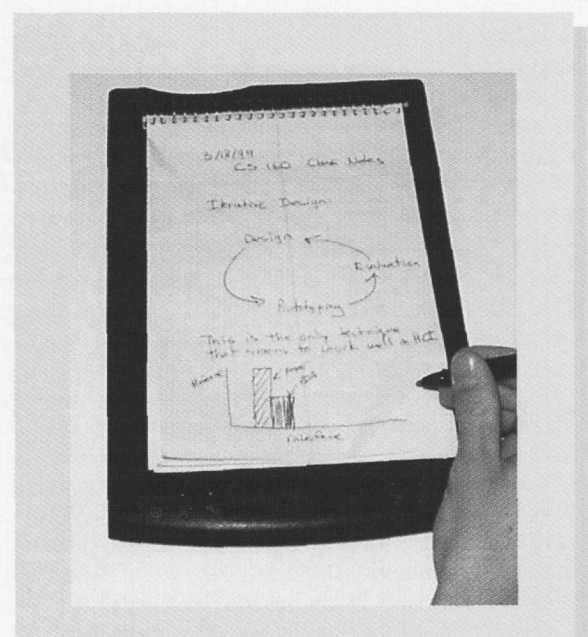 3/18/99
CS 160 Class Notes
Iterative Design:
Design
Evaluation
Prototyping
This is the only technique
that seems to work well in HCI
paper
Interface